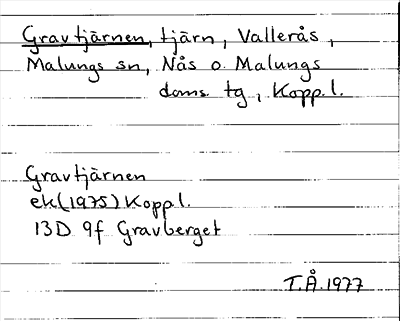 Gravtjärnen, tjärn, Vallerås,
Malungs sn, Nås o. Malungs
doms. tg, Kopp. l.
Gravtjärnen
ek (1975) Kopp l.
13D 9f Gravberget
T.Å. 1977